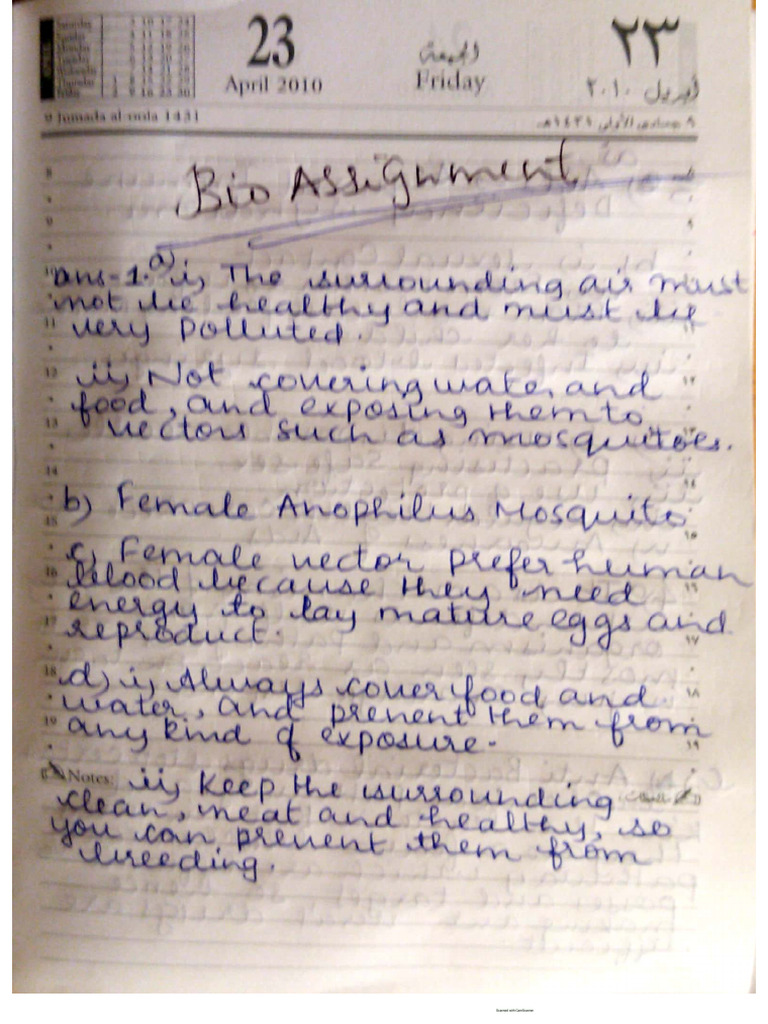 23
April 2010
الجمعة
Friday
٢٣
أبريل ٢٠١٠
9 Jumada al-oula 1431
٩ جمادى الأولى ١٤٣١هـ
Bio Assignment
ans-1. a) i) The surrounding air must
not be healthy and must be
very polluted.
ii) Not covering water and
food, and exposing them to
vectors such as mosquitoes.
b) Female Anophilus Mosquito
c) Female vector prefer human
blood because they need
energy to lay mature eggs and
reproduct.
d) i) Always cover food and
water, and prevent them from
any kind of exposure.
Notes: ii) Keep the surrounding
clean, neat and healthy, so
you can prevent them from
breeding.